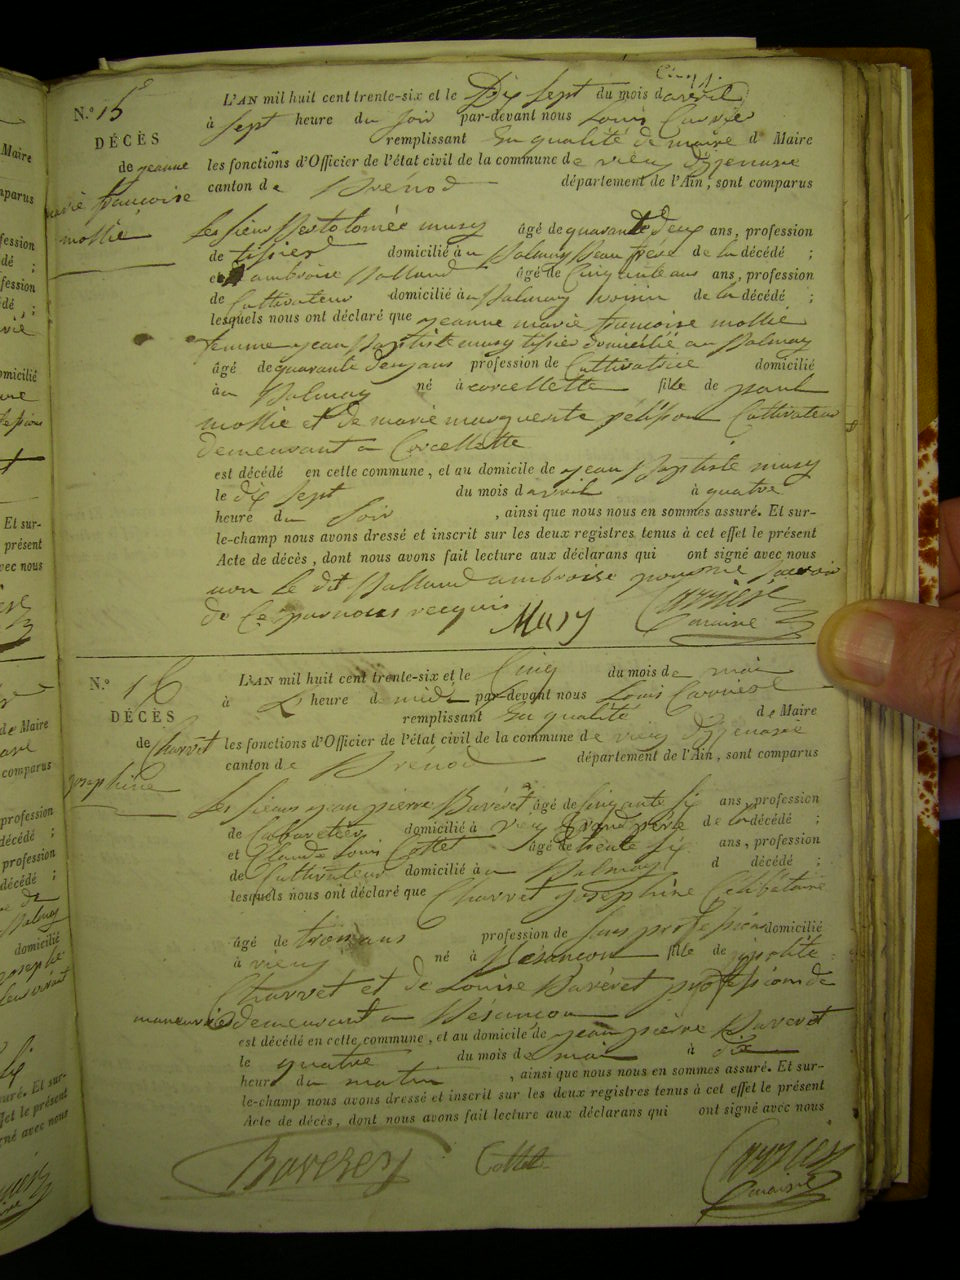 N.º 15
DÉCÈS
de jeanne
marie françoise
mollie
L'AN mil huit cent trente-six et le Dix sept du mois d avril
à sept heure du soir par-devant nous Louis Carrier
remplissant En qualité de maire d Maire
les fonctions d'Officier de l'état civil de la commune de vieu d'izenave
canton de Brénod département de l'Ain, sont comparus
Les sieurs Bertolomée musy âgé de quarante Deux ans, profession
de tisier domicilié à u Balmay Beau frère de la décédé ;
et ambroise Balland âgé de Cinquante ans, profession
de Cultivateur domicilié à u Balmay voisin de la décédé ;
lesquels nous ont déclaré que jeanne marie françoise mollie
femme jean Baptiste musy tisier domicilié au Balmay
âgé de quarante ans profession de Cultivatrice domicilié
à u Balmay né à corcellette fille de paul
mollie et de marie marguerite pélisson Cultivateur
demeurant a Corcellette
est décédé en cette commune, et au domicile de jean Baptiste musy
le dix sept du mois d avril à quatre
heure du soir , ainsi que nous nous en sommes assuré. Et sur-
le-champ nous avons dressé et inscrit sur les deux registres tenus à cet effet le présent
Acte de décès, dont nous avons fait lecture aux déclarans qui ont signé avec nous
non le dit Balland ambroise pour ne savoir
de Ce par nous requis Musy Carrier
maire
N.º 16
DÉCÈS
de Charvet
josephine
L'AN mil huit cent trente-six et le Cinq du mois de mai
à heure de midi par-devant nous Louis Carrier
remplissant En qualité de Maire
les fonctions d'Officier de l'état civil de la commune de vieu d'izenave
canton de Brenod département de l'Ain, sont comparus
Les sieurs jean pierre Baveret âgé de Cinquante six ans profession
de Cabaretier domicilié à vieu Grand père de la décédé ;
et Claude Louis Cottet âgé de trente six ans, profession
de Cultivateur domicilié à u Balmay d décédé ;
lesquels nous ont déclaré que Charvet josephine Célibataire
âgé de trois ans profession de sans profession domicilié
à vieu né à Bésançon fille de ipolite
Charvet et de Louise Baveret profession de
maneuvrier demeurant a Bésançon
est décédé en cette commune, et au domicile de jean pierre Baveret
le quatre du mois de mai à dix
heure du matin , ainsi que nous nous en sommes assuré. Et sur-
le-champ nous avons dressé et inscrit sur les deux registres tenus à cet effet le présent
Acte de décès, dont nous avons fait lecture aux déclarans qui ont signé avec nous
Baverey Cottet Carrier
maire